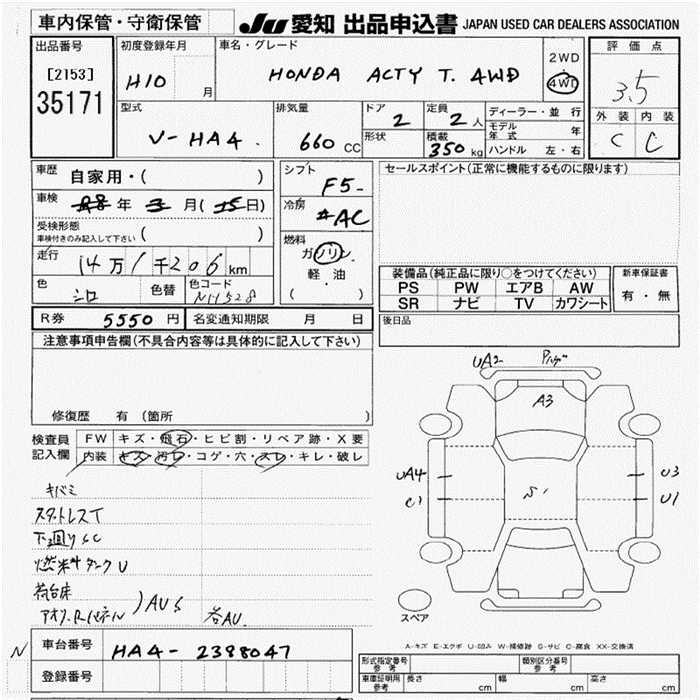 車内保管・守衛保管
JU 愛知 出品申込書 JAPAN USED CAR DEALERS ASSOCIATION
出品番号
[2153]
35171
初度登録年月
H10 月
車名・グレード
HONDA ACTY T. 4WD
2WD
4WD
評価点
3.5
外装 内装
C C
型式
V-HA4.
排気量
660 CC
ドア
2
定員
2 人
形状
積載
350 kg
ディーラー・並行
モデル年式 年
ハンドル 左・右
車歴
自家用・( )
車検
年 月( 日)
受検形態
車検付きのみ記入して下さい ( )
走行
14万1千206km
色
シロ
色替
色コード
NH528
シフト
F5
冷房
AC
燃料
ガソリン
軽・油
( )
セールスポイント(正常に機能するものに限ります)
装備品(純正品に限り○をつけてください)
PS PW エアB AW
SR ナビ TV カワシート
新車保証書
有・無
後日品
R券 5550円
名変通知期限 月 日
注意事項申告欄(不具合内容等は具体的に記入して下さい)
修復歴 有(箇所 )
検査員記入欄
FW キズ・飛石・ヒビ割・リペア跡・X要
内装 キズ・汚レ・コゲ・穴・スレ・キレ・破レ
キバミ
スタットレスT
下廻りSC
燃料タンクU
荷台床
アオリ.Rパネル )AUS
各AU
UA2
A3
UA4
C1
S1
U3
U1
スペア
A-キズ E-エクボ U-凹み W-補修跡 S-サビ C-腐食 XX-交換済
N 車台番号 HA4-2398047
登録番号
形式指定番号 参考
類別区分番号 参考
車庫証明用 参考 長さ cm 幅 cm 高さ cm